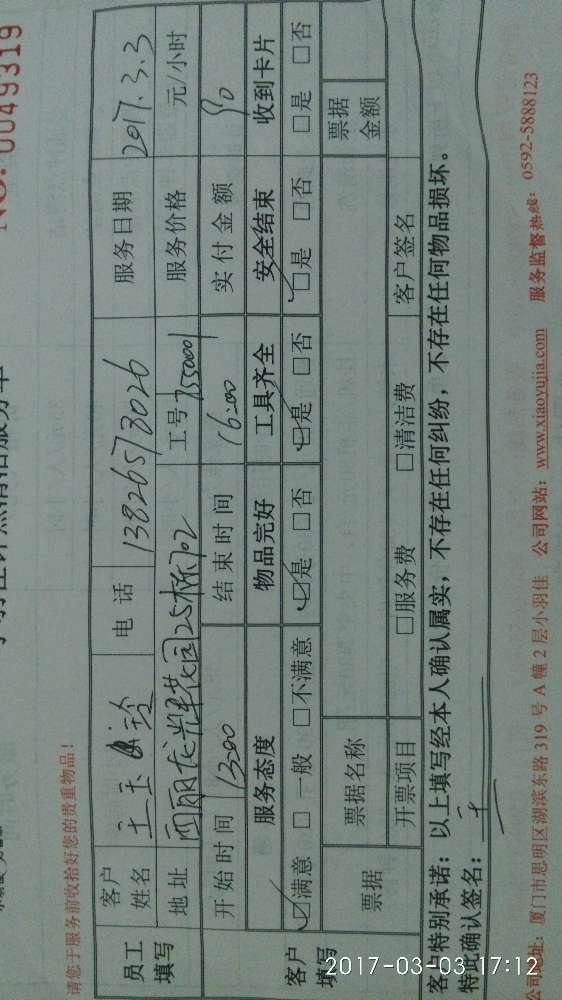 NO. 0049319
请您于服务前收拾好您的贵重物品！
员工填写 客户姓名 王玉玲 电话 13826573026 服务日期 2017.3.3
地址 西丽龙辉花园25栋702 工号 7550001 服务价格 元/小时
开始时间 1300 结束时间 16:00 实付金额 90
客户填写 服务态度 物品完好 工具齐全 安全结束 收到卡片
☑满意 □一般 □不满意 ☑是 □否 ☑是 □否 ☑是 □否 □是 □否
票据 票据名称 票据金额
开票项目 □服务费 □清洁费 客户签名
客户特别承诺：以上填写经本人确认属实，不存在任何纠纷，不存在任何物品损坏。
特此确认签名：
公司地址：厦门市思明区湖滨东路319号A幢2层小羽佳 公司网站：www.xiaoyujia.com 服务监督热线：0592-5888123
2017-03-03 17:12